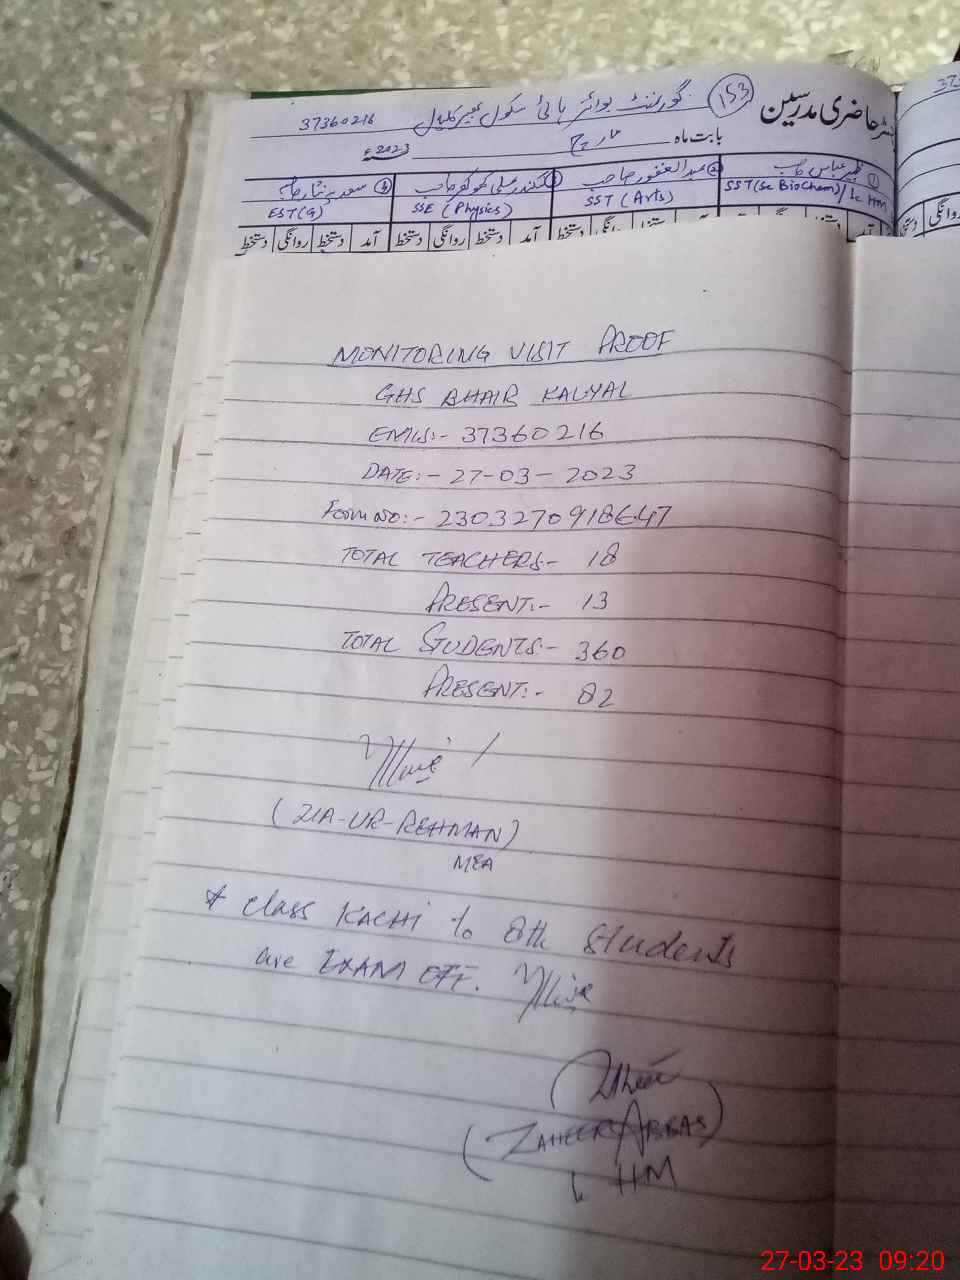 373
153
گورنمنٹ بوائز ہائی سکول بھیر کلیال
37360216
حاضری مدرسین
بابت ماہ مارچ
2023ء
① ظہیر عباس صاحب
② عبدالغفور صاحب
③ سکندر علی کھوکھر صاحب
④ سعدیہ نثار صاحبہ
SST (Sc BioChem) / Ic HM
SST (Arts)
SSE (Physics)
EST (G)
دستخط روانگی دستخط آمد دستخط روانگی دستخط آمد دستخط
MONITORING VISIT PROOF
GHS BHAIR KALYAL
EMIS:- 37360216
DATE:- 27-03-2023
Form No:- 2303270918647
TOTAL TEACHERS:- 18
PRESENT:- 13
TOTAL STUDENTS:- 360
PRESENT:- 82
(ZIA-UR-REHMAN)
MEA
* Class KACHI to 8th Students
are EXAM OFF.
(ZAHEER ABBAS)
Ic HM
27-03-23 09:20